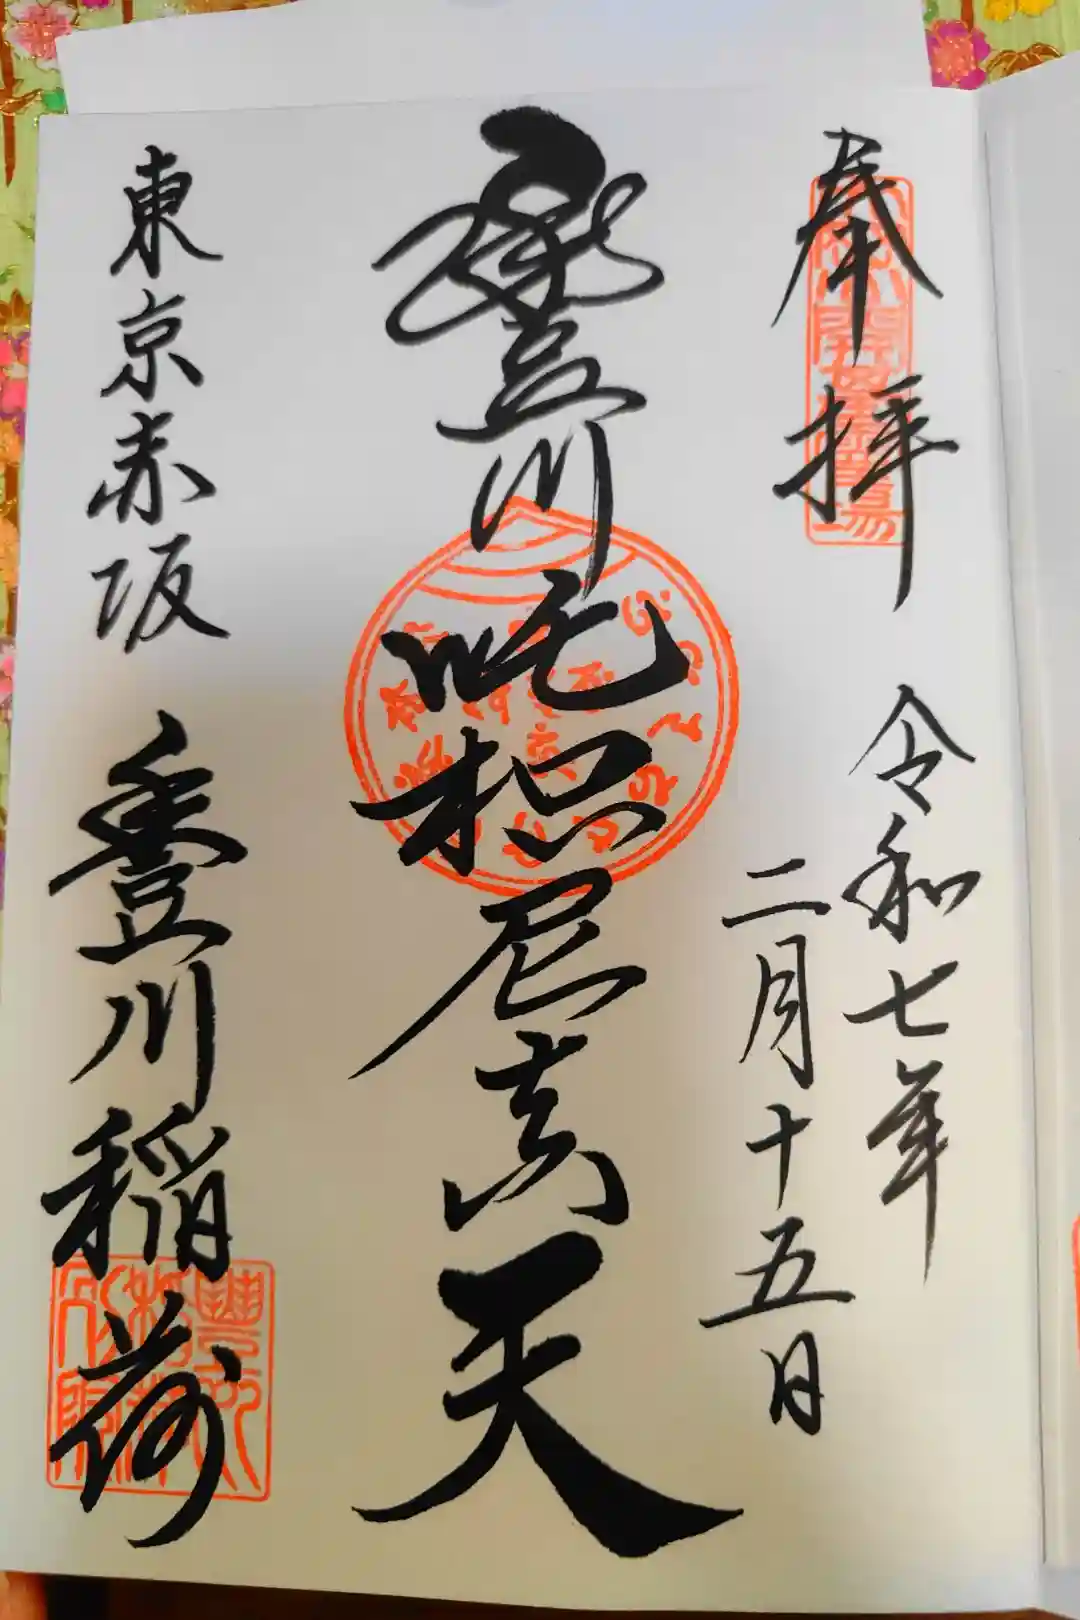 奉拝
令和七年
二月十五日
豊川吒枳尼真天
東京赤坂
豊川稲荷